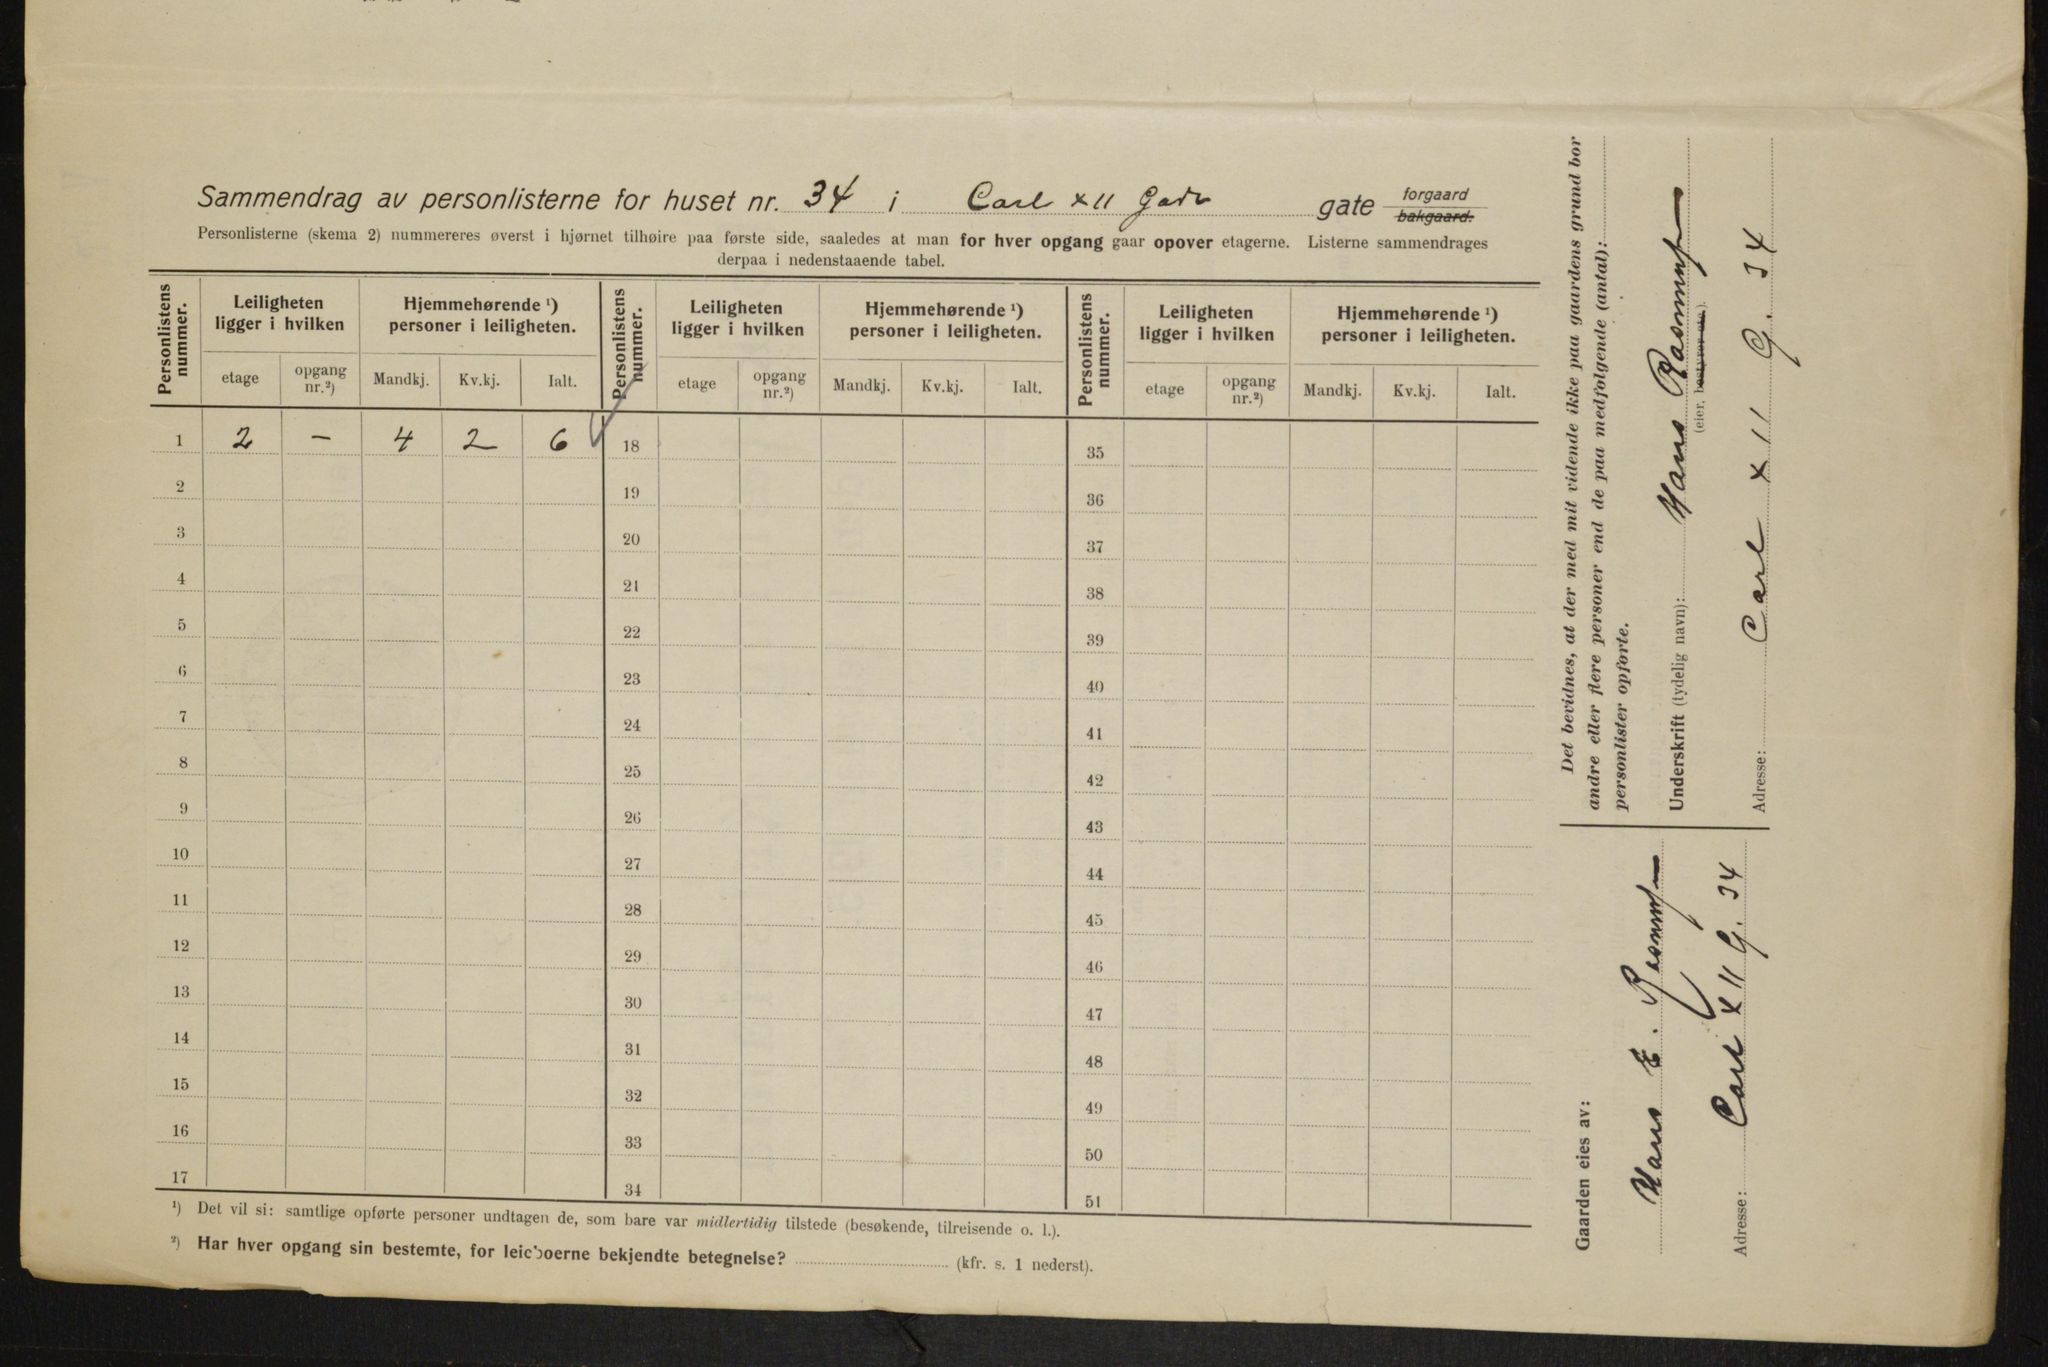 Sammendrag av personlisterne for huset nr. 34 i Carl XII Gade gate forgaard bakgaard.
Personlisterne (skema 2) nummereres øverst i hjørnet tilhøire paa første side, saaledes at man for hver opgang gaar opover etagerne. Listerne sammendrages
derpaa i nedenstaaende tabel.
Personlistens nummer. Leiligheten ligger i hvilken Hjemmehørende ¹) personer i leiligheten. Personlistens nummer. Leiligheten ligger i hvilken Hjemmehørende ¹) personer i leiligheten. Personlistens nummer. Leiligheten ligger i hvilken Hjemmehørende ¹) personer i leiligheten.
etage opgang nr.²) Mandkj. Kv.kj. Ialt. etage opgang nr.²) Mandkj. Kv.kj. Ialt. etage opgang nr.²) Mandkj. Kv.kj. Ialt.
1 2 – 4 2 6 18 35
2 19 36
3 20 37
4 21 38
5 22 39
6 23 40
7 24 41
8 25 42
9 26 43
10 27 44
11 28 45
12 29 46
13 30 47
14 31 48
15 32 49
16 33 50
17 34 51
¹) Det vil si: samtlige opførte personer undtagen de, som bare var midlertidig tilstede (besøkende, tilreisende o. l.).
²) Har hver opgang sin bestemte, for leieboerne bekjendte betegnelse? (kfr. s. 1 nederst).
Det bevidnes, at der med mit vidende ikke paa gaardens grund bor
andre eller flere personer end de paa medfolgende (antal):
personlister opforte.
Underskrift (tydelig navn): Hans Rasmussen
(eier, bestyrer etc.)
Adresse: Carl XII G. 34
Gaarden eies av:
Hans E. Rasmussen
Adresse: Carl XII G. 34